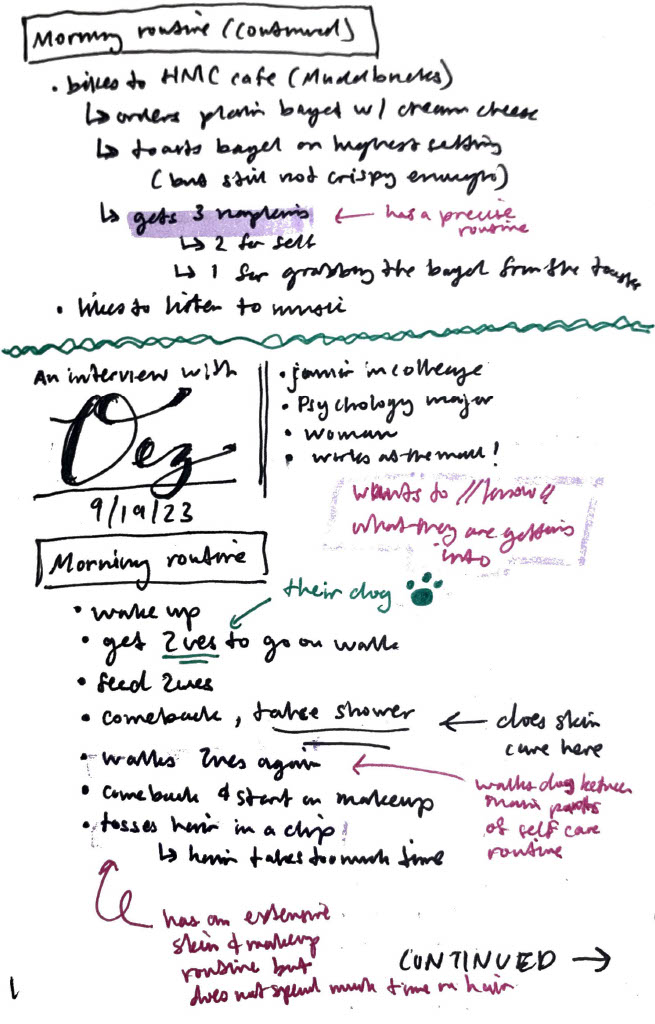 Morning routine (continued)
• bikes to HMC cafe (Muddbucks)
↳ orders plain bagel w/ cream cheese
↳ toasts bagel on highest setting
(but still not crispy enough)
↳ gets 3 napkins ← has a precise
routine
↳ 2 for self
↳ 1 for grabbing the bagel from the toaster
• likes to listen to music
An interview with
Dez
9/19/23
• junior in college
• Psychology major
• woman
• works at the mall!
wants to "know"
what they are getting
into
Morning routine
their dog
• wake up
• get Zues to go on walk
• feed Zues
• comeback, take shower ← does skin
care here
• walks Zues again
walks dog between
main parts
of self care
routine
• comeback & start on makeup
• tosses hair in a clip
↳ hair takes too much time
has an extensive
skin & makeup
routine but
does not spend much time on hair
CONTINUED →